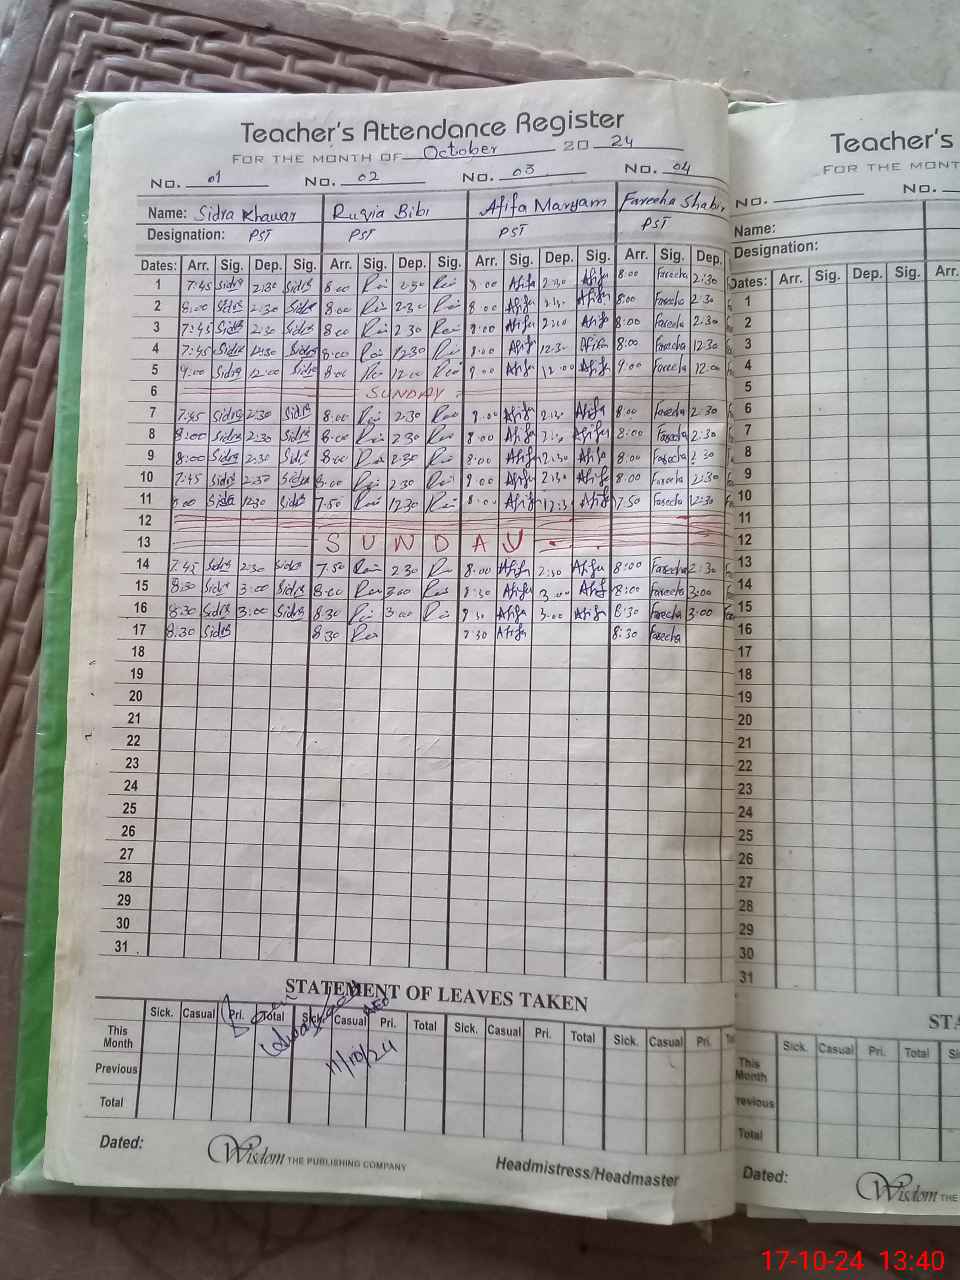 Teacher's Attendance Register
FOR THE MONTH OF October 20 24
No. 01 No. 02 No. 03 No. 04
Name: Sidra Khawar Ruqia Bibi Afifa Maryam Fareeha Shabir
Designation: PST PST PST PST
Dates: Arr. Sig. Dep. Sig. Arr. Sig. Dep. Sig. Arr. Sig. Dep. Sig. Arr. Sig. Dep.
1 7:45 Sidra 2:30 Sidra 8:00 2:30 8:00 Afifa 2:30 Afifa 8:00 Fareeha 2:30
2 8:00 Sidra 2:30 Sidra 8:00 2:30 8:00 Afifa 2:30 Afifa 8:00 Fareeha 2:30
3 7:45 Sidra 2:30 Sidra 8:00 2:30 8:00 Afifa 2:30 Afifa 8:00 Fareeha 2:30
4 7:45 Sidra 12:30 Sidra 8:00 12:30 8:00 Afifa 12:30 Afifa 8:00 Fareeha 12:30
5 9:00 Sidra 12:00 Sidra 12:00 9:00 Afifa 12:00 Afifa 9:00 Fareeha 12:00
6 SUNDAY
7 7:45 Sidra 2:30 Sidra 8:00 2:30 8:00 Afifa 2:30 Afifa 8:00 Fareeha 2:30
8 8:00 Sidra 2:30 Sidra 8:00 2:30 8:00 Afifa 2:30 Afifa 8:00 Fareeha 2:30
9 8:00 Sidra 2:30 Sidra 8:00 2:30 8:00 Afifa 2:30 Afifa 8:00 Fareeha 2:30
10 7:45 Sidra 2:30 Sidra 8:00 2:30 9:00 Afifa 2:30 Afifa 8:00 Fareeha 2:30
11 Sidra 12:30 Sidra 7:50 12:30 8:00 Afifa 12:30 Afifa 7:50 Fareeha 12:30
12
13 SUNDAY
14 7:45 Sidra 2:30 Sidra 7:50 2:30 8:00 Afifa 2:30 Afifa 8:00 Fareeha 2:30
15 8:30 Sidra 3:00 Sidra 8:00 3:00 8:30 Afifa 3:00 Afifa 8:00 Fareeha 3:00
16 8:30 Sidra 3:00 Sidra 8:30 3:00 Afifa 3:00 Afifa 8:30 Fareeha 3:00
17 8:30 Sidra 8:30 7:30 Afifa 8:30 Fareeha
18
19
20
21
22
23
24
25
26
27
28
29
30
31
STATEMENT OF LEAVES TAKEN
Sick. Casual Pri. Total Sick. Casual Pri. Total Sick. Casual Pri. Total Sick. Casual Pri.
This Month
AEO
Previous
17/10/24
Total
Dated: Wisdom THE PUBLISHING COMPANY Headmistress/Headmaster
Teacher's
FOR THE MONT
No. No.
Name:
Designation:
Dates: Arr. Sig. Dep. Sig. Arr.
1
2
3
4
5
6
7
8
9
10
11
12
13
14
15
16
17
18
19
20
21
22
23
24
25
26
27
28
29
30
31
STA
Sick. Casual Pri. Total
This Month
revious
Total
Dated: Wisdom THE
17-10-24 13:40